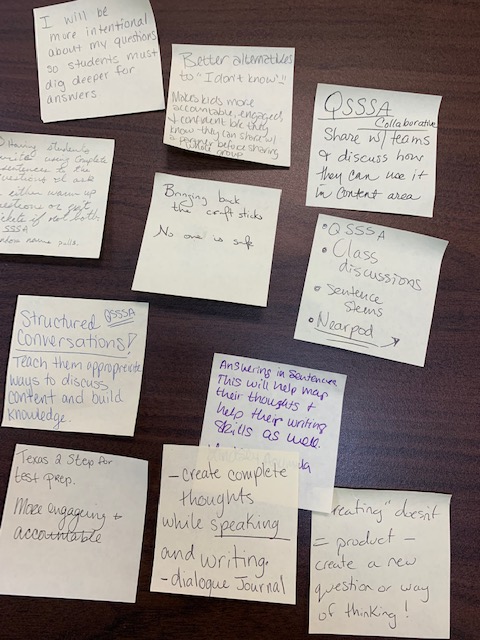 I will be
more intentional
about my questions
so students must
dig deeper for
answers
Better alternatives
to "I don't know"!
Makes kids more
accountable, engaged,
& confident bc they
know they can share w/
a partner before sharing
whole group
QSSSA
Collaborative
Share w/ teams
& discuss how
they can use it
in content area
Having students
using complete
sentences to the
either warm up
or exit
tickets if not both
SSSA
random name pulls.
Bringing back
the craft sticks
No one is safe
• QSSSA
• Class
discussions
• Sentence
Stems
• Nearpod
Structured QSSSA
Conversations!
Teach them appropriate
ways to discuss
content and build
knowledge.
Answering in Sentences
This will help map
their thoughts &
help their writing
skills as well.
Texas 2 Step for
test prep.
More engaging &
accountable
- create complete
thoughts
while speaking
and writing.
- dialogue Journal
reating" doesn't
= product -
create a new
question or way
of thinking!